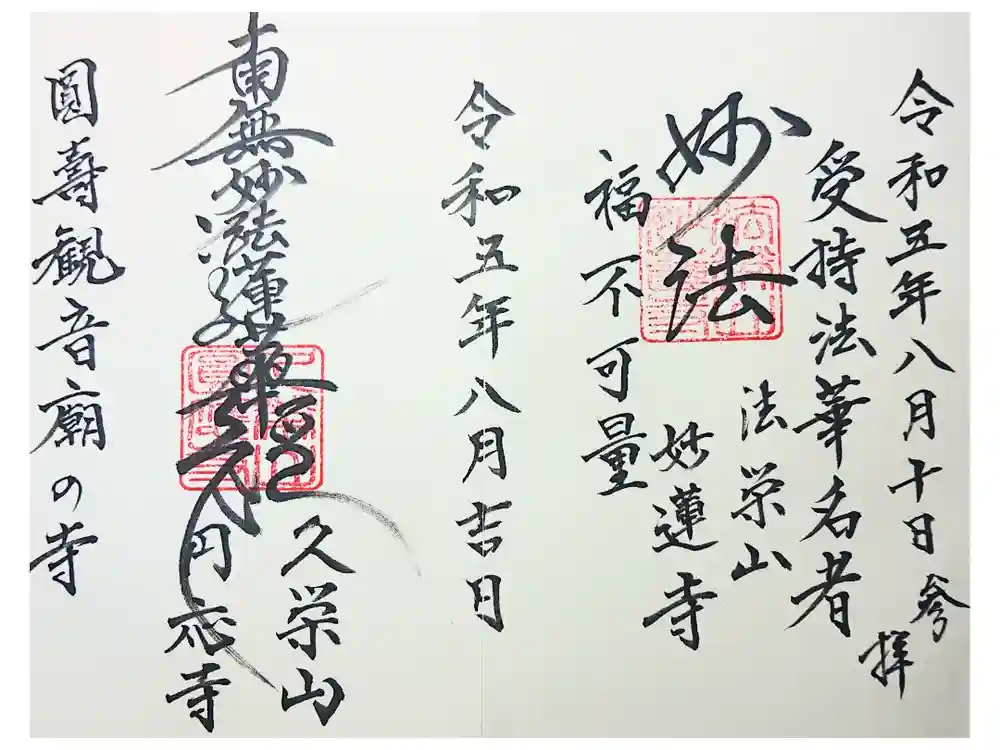 令和五年八月十日 参拝
受持法華名者
妙法
福不可量
法栄山
妙蓮寺
令和五年八月吉日
南無妙法蓮華経
久栄山
円応寺
圓壽観音廟の寺